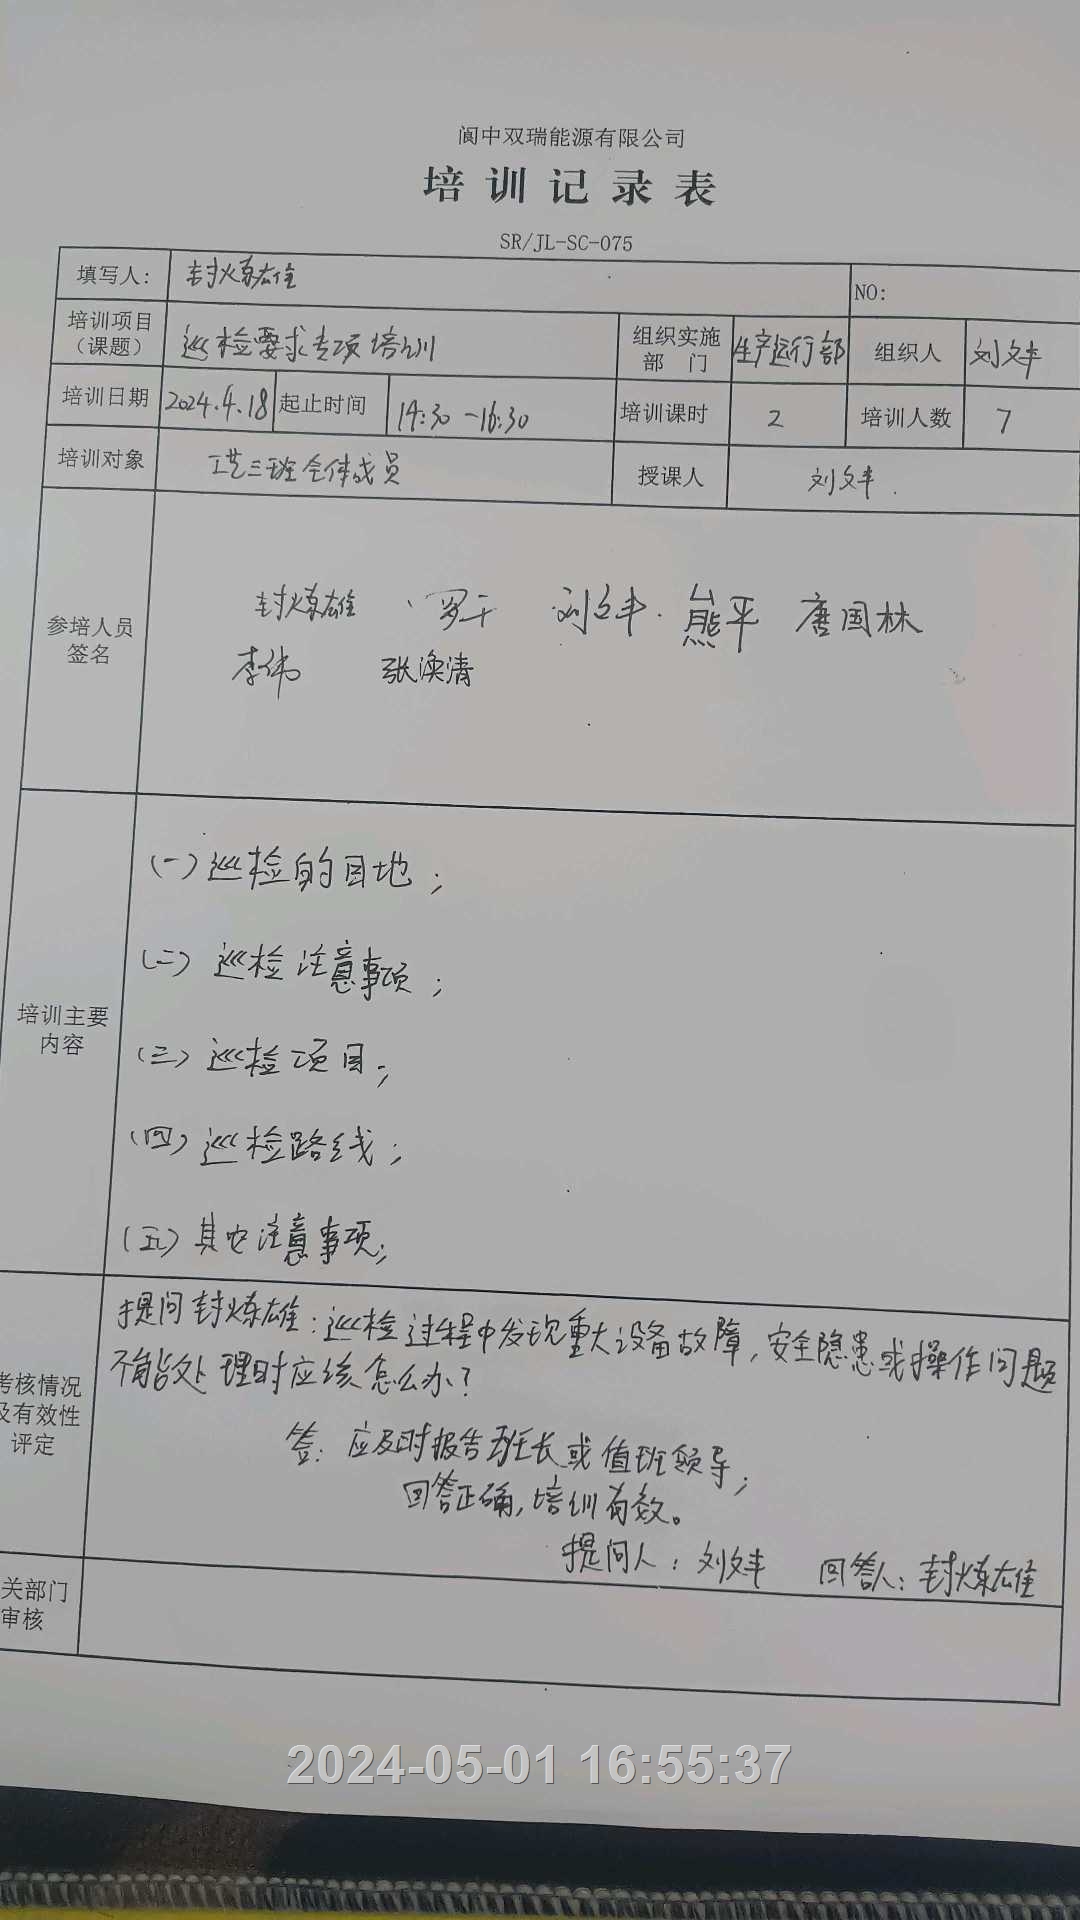 阆中双瑞能源有限公司
培训记录表
SR/JL-SC-075
填写人: 封炼雄 NO:
培训项目（课题） 巡检要求专项培训 组织实施部门 生产运行部 组织人 刘文丰
培训日期 2024.4.18 起止时间 14:30-16:30 培训课时 2 培训人数 7
培训对象 工艺三班全体成员 授课人 刘文丰.
参培人员签名
封炼雄 罗千 刘文丰 熊平 唐国林
李伟 张涣清
培训主要内容
(一)巡检的目地；
(二)巡检注意事项；
(三)巡检项目；
(四)巡检路线；
(五)其它注意事项；
考核情况及有效性评定
提问封炼雄:巡检过程中发现重大设备故障,安全隐患或操作问题
不能处理时应该怎么办?
答:应及时报告班长或值班领导；
回答正确,培训有效。
提问人:刘文丰 回答人:封炼雄
关部门审核
2024-05-01 16:55:37